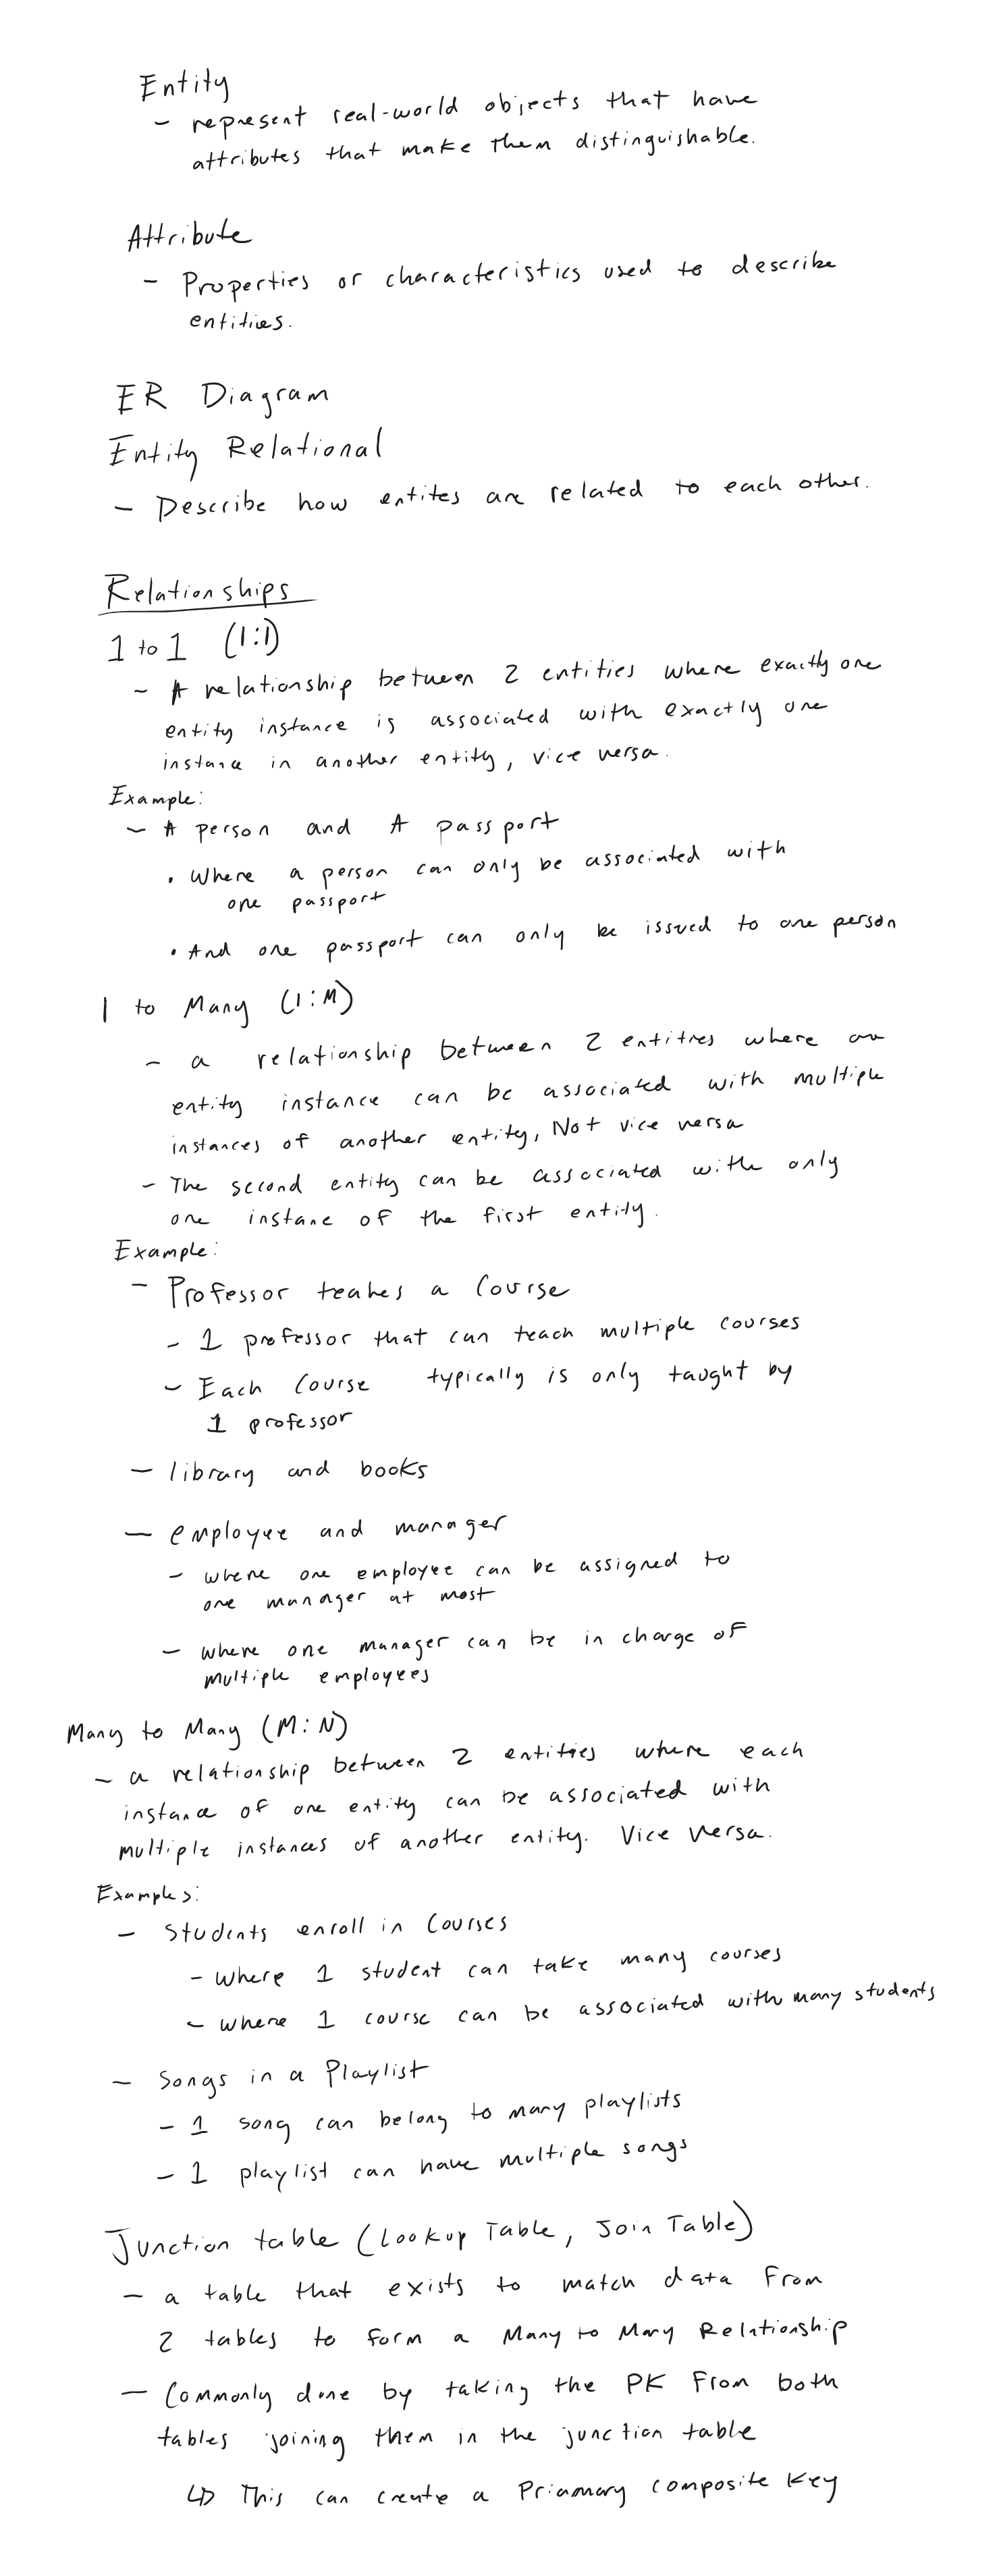 Entity
- represent real-world objects that have
attributes that make them distinguishable.
Attribute
- Properties or characteristics used to describe
entities.
ER Diagram
Entity Relational
- Describe how entites are related to each other.
Relationships
1 to 1 (1:1)
- A relationship between 2 entities where exactly one
entity instance is associated with exactly one
instance in another entity, vice versa.
Example:
- A person and A passport
• Where a person can only be associated with
one passport
• And one passport can only be issued to one person
1 to Many (1:M)
- a relationship between 2 entities where an
entity instance can be associated with multiple
instances of another entity, Not vice versa
- The second entity can be associated with only
one instane of the first entity.
Example:
- Professor teahes a Course
- 1 professor that can teach multiple courses
- Each Course typically is only taught by
1 professor
- library and books
- employee and manager
- where one employee can be assigned to
one manager at most
- where one manager can be in charge of
multiple employees
Many to Many (M:N)
- a relationship between 2 entities where each
instance of one entity can be associated with
multiple instances of another entity. Vice Versa.
Examples:
- Students enroll in Courses
- where 1 student can take many courses
- where 1 course can be associated with many students
- Songs in a Playlist
- 1 song can belong to many playlists
- 1 playlist can have multiple songs
Junction table (Lookup Table, Join Table)
- a table that exists to match data From
2 tables to form a Many to Many Relationship
- Commonly done by taking the PK From both
tables joining them in the junction table
↳ This can create a Priamary composite Key